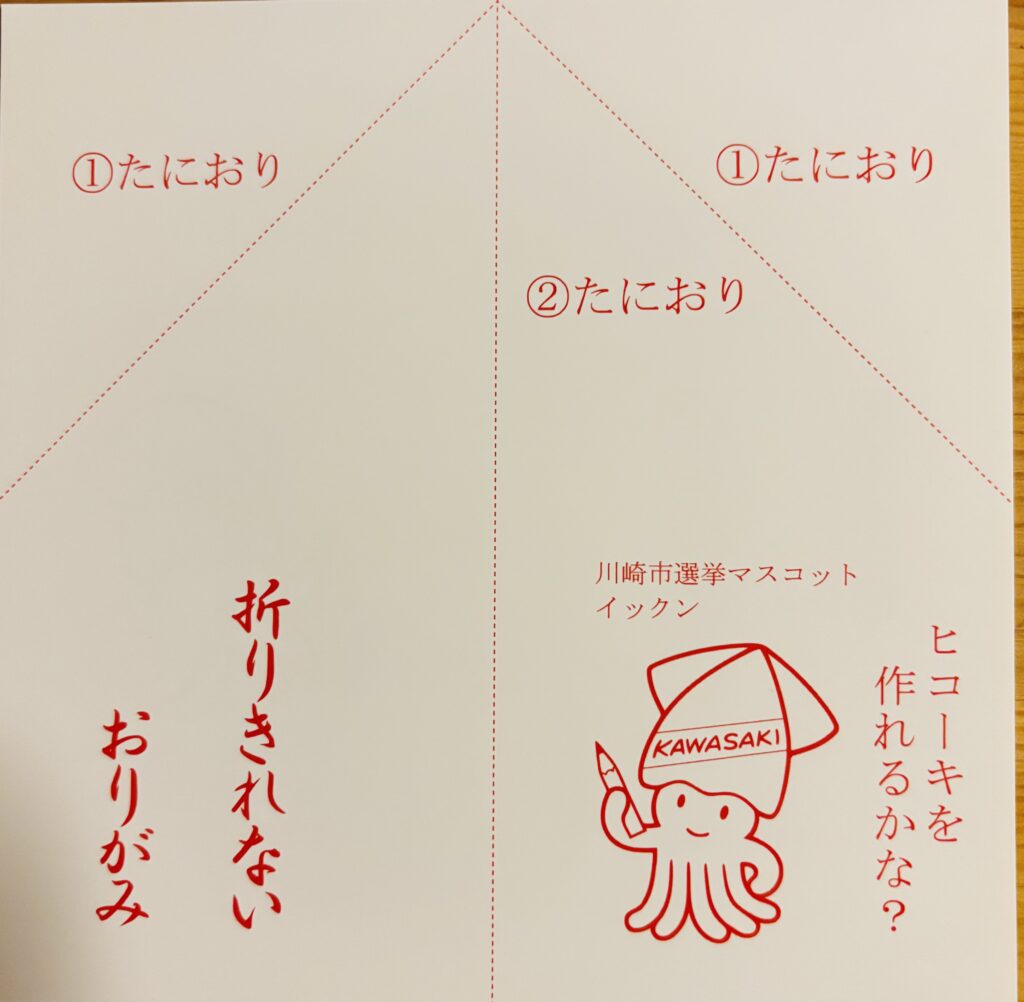 ①たにおり
①たにおり
②たにおり
川崎市選挙マスコット
イックン
KAWASAKI
ヒコーキを
作れるかな?
折りきれない
おりがみ